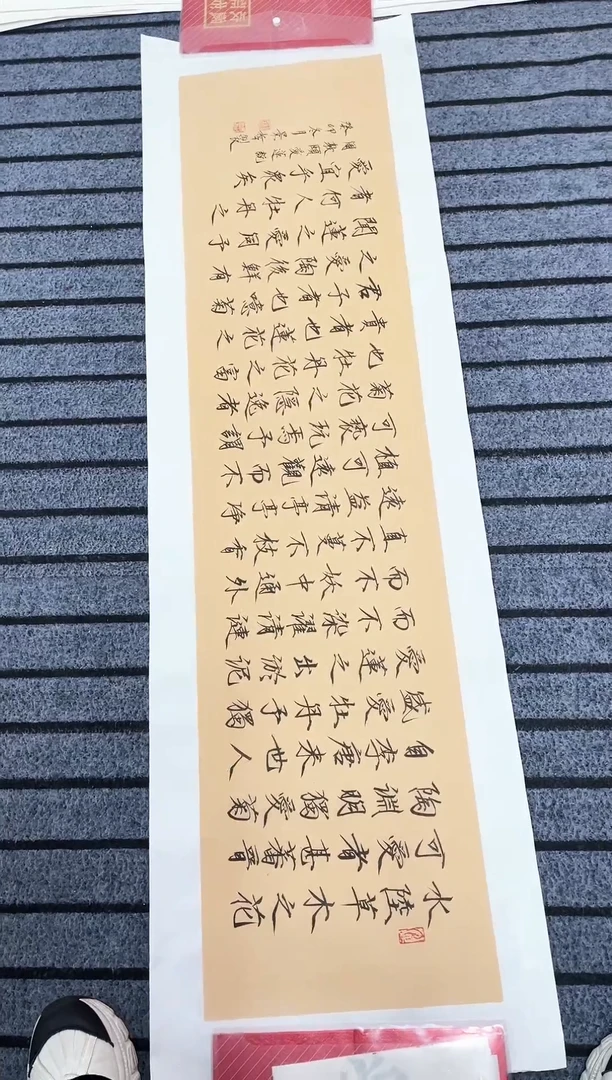 水陸草木之花
可愛者甚蕃晋
陶淵明獨愛菊
自李唐来世人
盛愛牡丹予獨
愛蓮之出淤泥
而不染濯清漣
而不妖中通外
直不蔓不枝香
遠益清亭亭净
植可遠觀而不
可褻玩焉予謂
菊花之隐逸者
也牡丹花之富
貴者也蓮花之
君子者也噫菊
之愛陶後鮮有
聞蓮之愛同予
者何人牡丹之
愛宜乎衆矣
周敦頤愛蓮説
癸卯冬月
收藏
证书